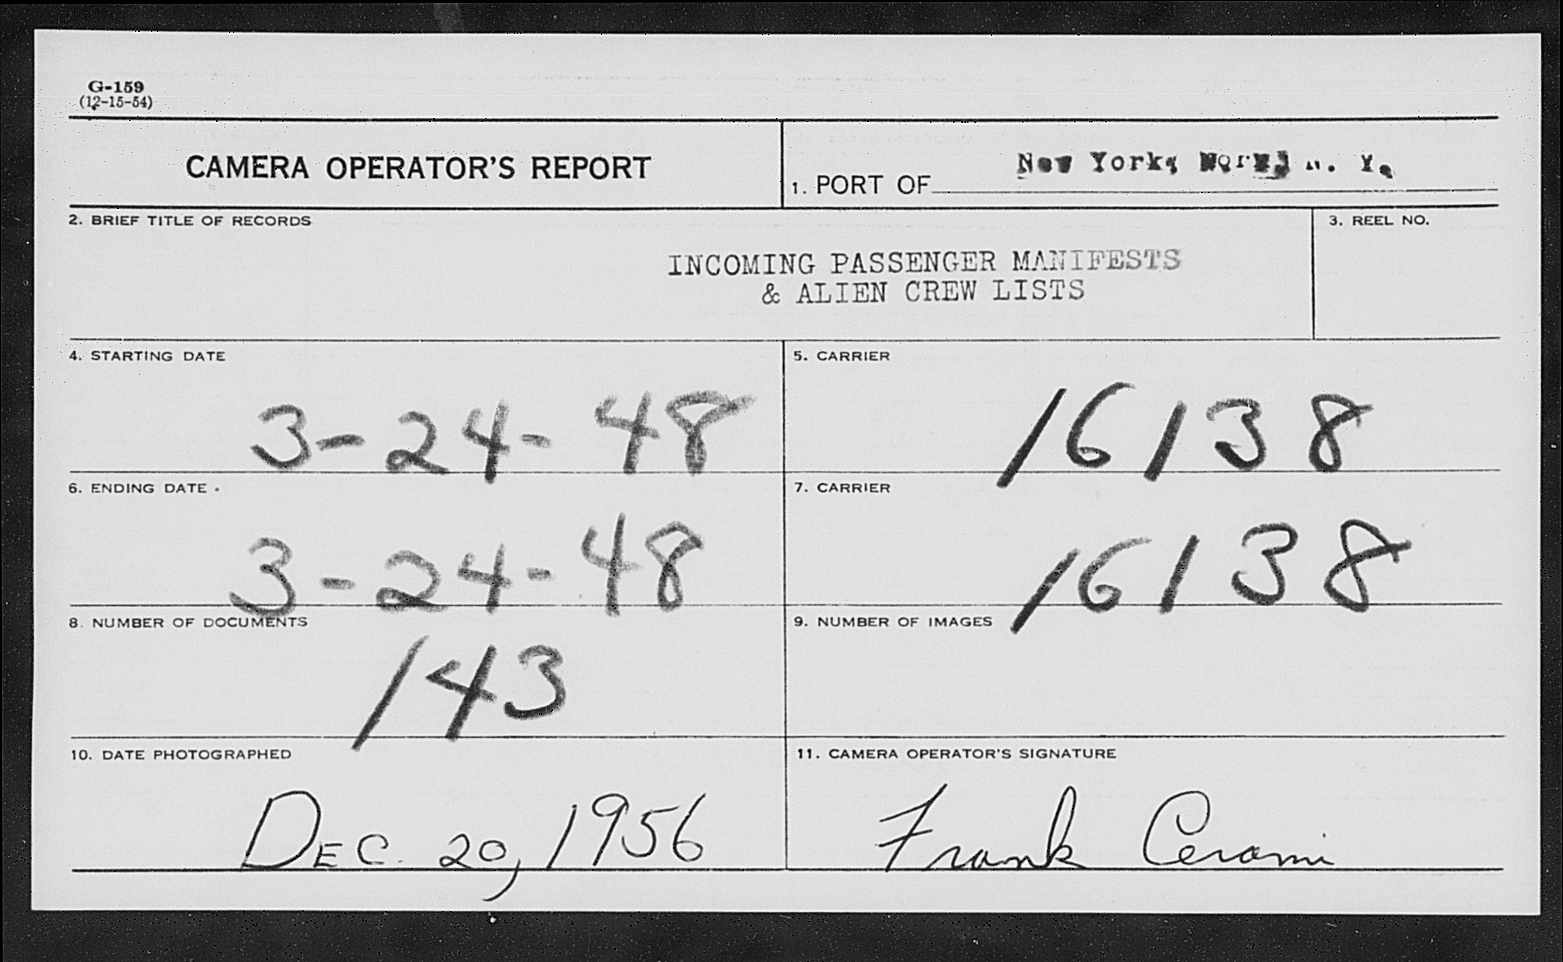 G-159
(12-15-54)
CAMERA OPERATOR'S REPORT
1. PORT OF New York, N. Y.
2. BRIEF TITLE OF RECORDS
3. REEL NO.
INCOMING PASSENGER MANIFESTS
& ALIEN CREW LISTS
4. STARTING DATE
3-24-48
5. CARRIER
16138
6. ENDING DATE
3-24-48
7. CARRIER
16138
8. NUMBER OF DOCUMENTS
143
9. NUMBER OF IMAGES
10. DATE PHOTOGRAPHED
DEC. 20, 1956
11. CAMERA OPERATOR'S SIGNATURE
Frank Cerami